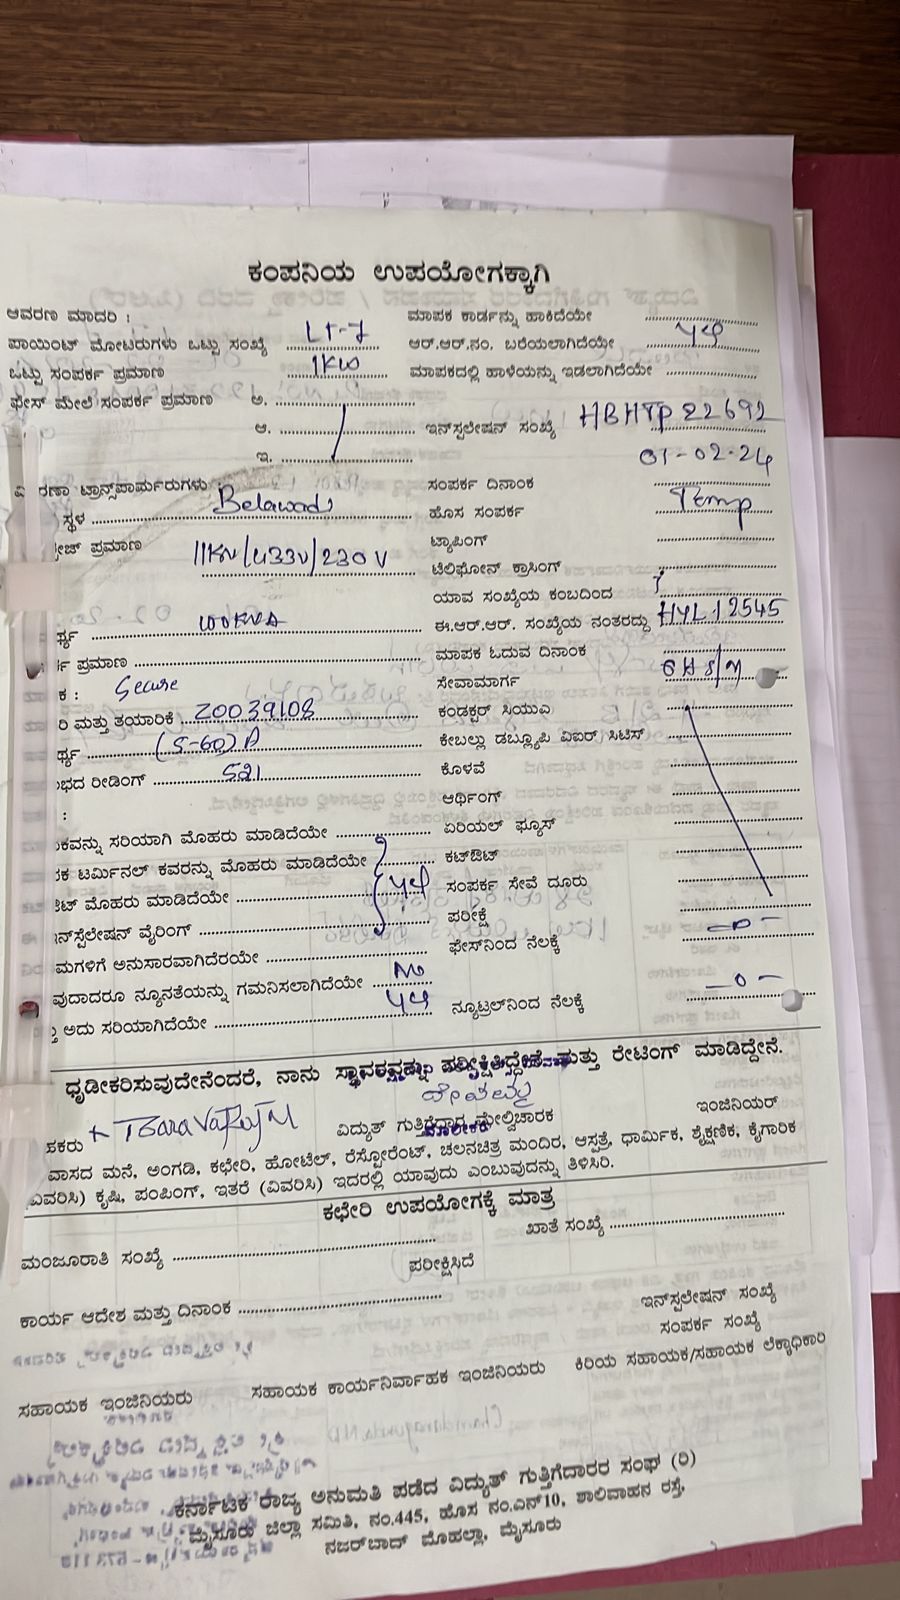 ಕಂಪನಿಯ ಉಪಯೋಗಕ್ಕಾಗಿ
ಆವರಣ ಮಾದರಿ : ಮಾಪಕ ಕಾರ್ಡನ್ನು ಹಾಕಿದೆಯೇ
ಪಾಯಿಂಟ್ ಮೋಟರುಗಳು ಒಟ್ಟು ಸಂಖ್ಯೆ LT-7 ಆರ್.ಆರ್.ನಂ. ಬರೆಯಲಾಗಿದೆಯೇ
ಒಟ್ಟು ಸಂಪರ್ಕ ಪ್ರಮಾಣ 1KW ಮಾಪಕದಲ್ಲಿ ಹಾಳೆಯನ್ನು ಇಡಲಾಗಿದೆಯೇ
ಫೇಸ್ ಮೇಲೆ ಸಂಪರ್ಕ ಪ್ರಮಾಣ ಅ.
ಆ. ಇನ್ಸ್ಟಲೇಷನ್ ಸಂಖ್ಯೆ HBHTP 22692
ಇ. 01-02-24
ರಣಾ ಟ್ರಾನ್ಸ್‌ಪಾರ್ಮರುಗಳು : ಸಂಪರ್ಕ ದಿನಾಂಕ
ಸ್ಥಳ Belawadi ಹೊಸ ಸಂಪರ್ಕ Temp
ೇಜ್ ಪ್ರಮಾಣ 11KV/433V/230V ಟ್ಯಾಪಿಂಗ್
ಟೆಲಿಫೋನ್ ಕ್ರಾಸಿಂಗ್
ಯಾವ ಸಂಖ್ಯೆಯ ಕಂಬದಿಂದ
ರ್ಥ್ಯ 100KVA ಈ.ಆರ್.ಆರ್. ಸಂಖ್ಯೆಯ ನಂತರದ್ದು HYL12545
ಪ್ರಮಾಣ ಮಾಪಕ ಓದುವ ದಿನಾಂಕ
ಕ : Secure ಸೇವಾಮಾರ್ಗ
ರಿ ಮತ್ತು ತಯಾರಿಕೆ 20039108 ಕಂಡಕ್ಟರ್ ಸಿಯುಎ
ರ್ಥ್ಯ (5-60) A ಕೇಬಲ್ಲು ಡಬ್ಲ್ಯೂಪಿ ವಿಐಆರ್ ಸಿಟಿಸ್
ಭದ ರೀಡಿಂಗ್ 521 ಕೊಳವೆ
: ಆರ್ಥಿಂಗ್
ಕವನ್ನು ಸರಿಯಾಗಿ ಮೊಹರು ಮಾಡಿದೆಯೇ ಏರಿಯಲ್ ಫ್ಯೂಸ್
ಕ ಟರ್ಮಿನಲ್ ಕವರನ್ನು ಮೊಹರು ಮಾಡಿದೆಯೇ ಕಟ್‌ಔಟ್
ಟ್ ಮೊಹರು ಮಾಡಿದೆಯೇ ಸಂಪರ್ಕ ಸೇವೆ ದೂರು
ನ್‌ಸ್ಟೆಲೇಷನ್ ವೈರಿಂಗ್ ಪರೀಕ್ಷೆ
ಮಗಳಿಗೆ ಅನುಸಾರವಾಗಿದೆರಯೇ ಫೇಸ್‌ನಿಂದ ನೆಲಕ್ಕೆ
ವುದಾದರೂ ನ್ಯೂನತೆಯನ್ನು ಗಮನಿಸಲಾಗಿದೆಯೇ No
ಅದು ಸರಿಯಾಗಿದೆಯೇ ನ್ಯೂಟ್ರಲ್‌ನಿಂದ ನೆಲಕ್ಕೆ —0—
ಧೃಡೀಕರಿಸುವುದೇನೆಂದರೆ, ನಾನು ಸ್ಥಾವರವನ್ನು ಪರೀಕ್ಷಿಸಿದ್ದೇನೆ ಮತ್ತು ರೇಟಿಂಗ್ ಮಾಡಿದ್ದೇನೆ.
ಹಕರು ವಿದ್ಯುತ್ ಗುತ್ತಿಗೆದಾರ ಮೇಲ್ವಿಚಾರಕ ಇಂಜಿನಿಯರ್
ವಾಸದ ಮನೆ, ಅಂಗಡಿ, ಕಛೇರಿ, ಹೋಟೆಲ್, ರೆಸ್ಟೋರೆಂಟ್, ಚಲನಚಿತ್ರ ಮಂದಿರ, ಆಸ್ಪತ್ರೆ, ಧಾರ್ಮಿಕ, ಶೈಕ್ಷಣಿಕ, ಕೈಗಾರಿಕ
(ವಿವರಿಸಿ) ಕೃಷಿ, ಪಂಪಿಂಗ್, ಇತರೆ (ವಿವರಿಸಿ) ಇದರಲ್ಲಿ ಯಾವುದು ಎಂಬುವುದನ್ನು ತಿಳಿಸಿರಿ.
ಕಛೇರಿ ಉಪಯೋಗಕ್ಕೆ ಮಾತ್ರ
ಮಂಜೂರಾತಿ ಸಂಖ್ಯೆ ಖಾತೆ ಸಂಖ್ಯೆ
ಪರೀಕ್ಷಿಸಿದೆ
ಕಾರ್ಯ ಆದೇಶ ಮತ್ತು ದಿನಾಂಕ ಇನ್‌ಸ್ಟಲೇಷನ್ ಸಂಖ್ಯೆ
ಸಂಪರ್ಕ ಸಂಖ್ಯೆ
ಸಹಾಯಕ ಇಂಜಿನಿಯರು ಸಹಾಯಕ ಕಾರ್ಯನಿರ್ವಾಹಕ ಇಂಜಿನಿಯರು ಕಿರಿಯ ಸಹಾಯಕ/ಸಹಾಯಕ ಲೆಕ್ಕಾಧಿಕಾರಿ
ಕರ್ನಾಟಕ ರಾಜ್ಯ ಅನುಮತಿ ಪಡೆದ ವಿದ್ಯುತ್ ಗುತ್ತಿಗೆದಾರರ ಸಂಘ (ರಿ)
ಮೈಸೂರು ಜಿಲ್ಲಾ ಸಮಿತಿ, ನಂ.445, ಹೊಸ ನಂ.ಎನ್10, ಶಾಲಿವಾಹನ ರಸ್ತೆ,
ನಜರ್‌ಬಾದ್ ಮೊಹಲ್ಲಾ, ಮೈಸೂರು